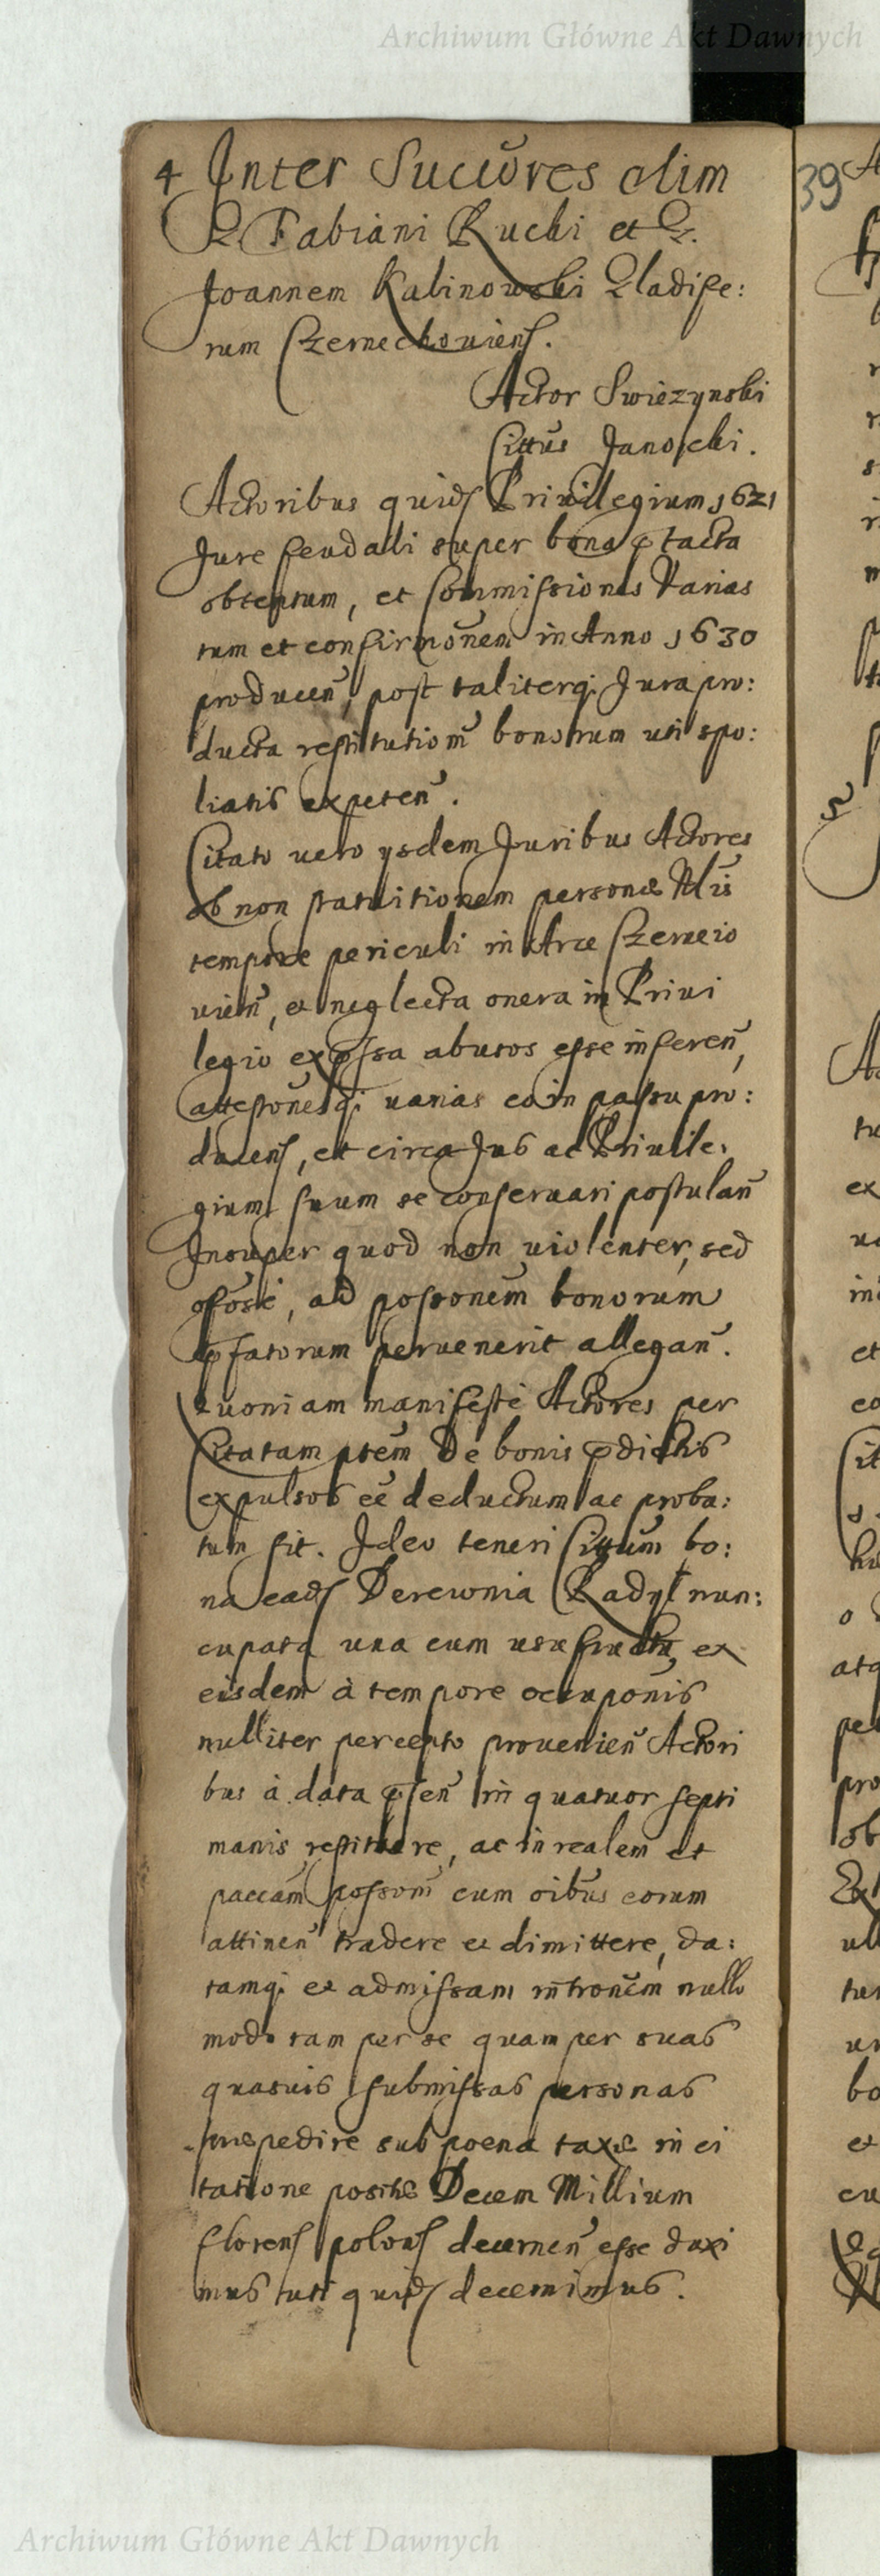 Archiwum Główne Akt Dawnych
4 Inter Succōres olim
G. Fabiani Rucki et G.
Joannem Kalinowski Gladife:
rum Czernechouienſ.
Actor Swiezynski
Cittūs Janoſcki.
Actoribus quidſ Priuilegium 1621
Jure feudali super bona p̄tacta
obtentum, et Commiſsiones Varias
tum et confirmōnem in Anno 1630
producen̄, post taliterq; Jura pro:
ducta reſtitutionem̄ bonorum uti spo:
liatis expeten̄.
Citato vero ysdem Juribus Actores
ob non ſtatuitionem personæ Mlis̄
tempore periculi in Arce Czerneio
uien̄, et neglecta onera in Priui
legio exp̄ſsa abusos eſse inferen̄,
atteſtōnesq; uarias eo in paſsu pro:
ducenſ, et circa Jus ac Priuile:
gium ſuum se conſeruari poſtulan̄
Insuper quod non uiolenter, sed
oſōsè, ad poſsonēm bonorum
p̄fatorum peruenerit allegan̄.
Quoniam manifeſtè Actores per
Citatam ptēm De bonis p̄dictis
expulsos eē deductum ac proba:
tum ſit. Ideo teneri Cittūm bo:
na eadſ Derewnia Radyſ nun:
cupata una cum usufructu, ex
eisdem à tempore occupōnis
nulliter percepto prouenien̄ Actori
bus à data p̄ſen̄ in quatuor ſepti
manis reſtituere, ac in realem et
paccām poſsonem̄ cum oibūs eorum
attinen̄ tradere et dimittere, da:
tamq; et admiſsam intronēm nullo
modo tam per se quam per suas
quasuis ſubmiſsas personas
præpedire sub poena taxæ in ci
tatione positæ Decem Millium
florenſ polonſ decernen̄ eſse duxi
mus uti quidſ decernimus.
39
Archiwum Główne Akt Dawnych